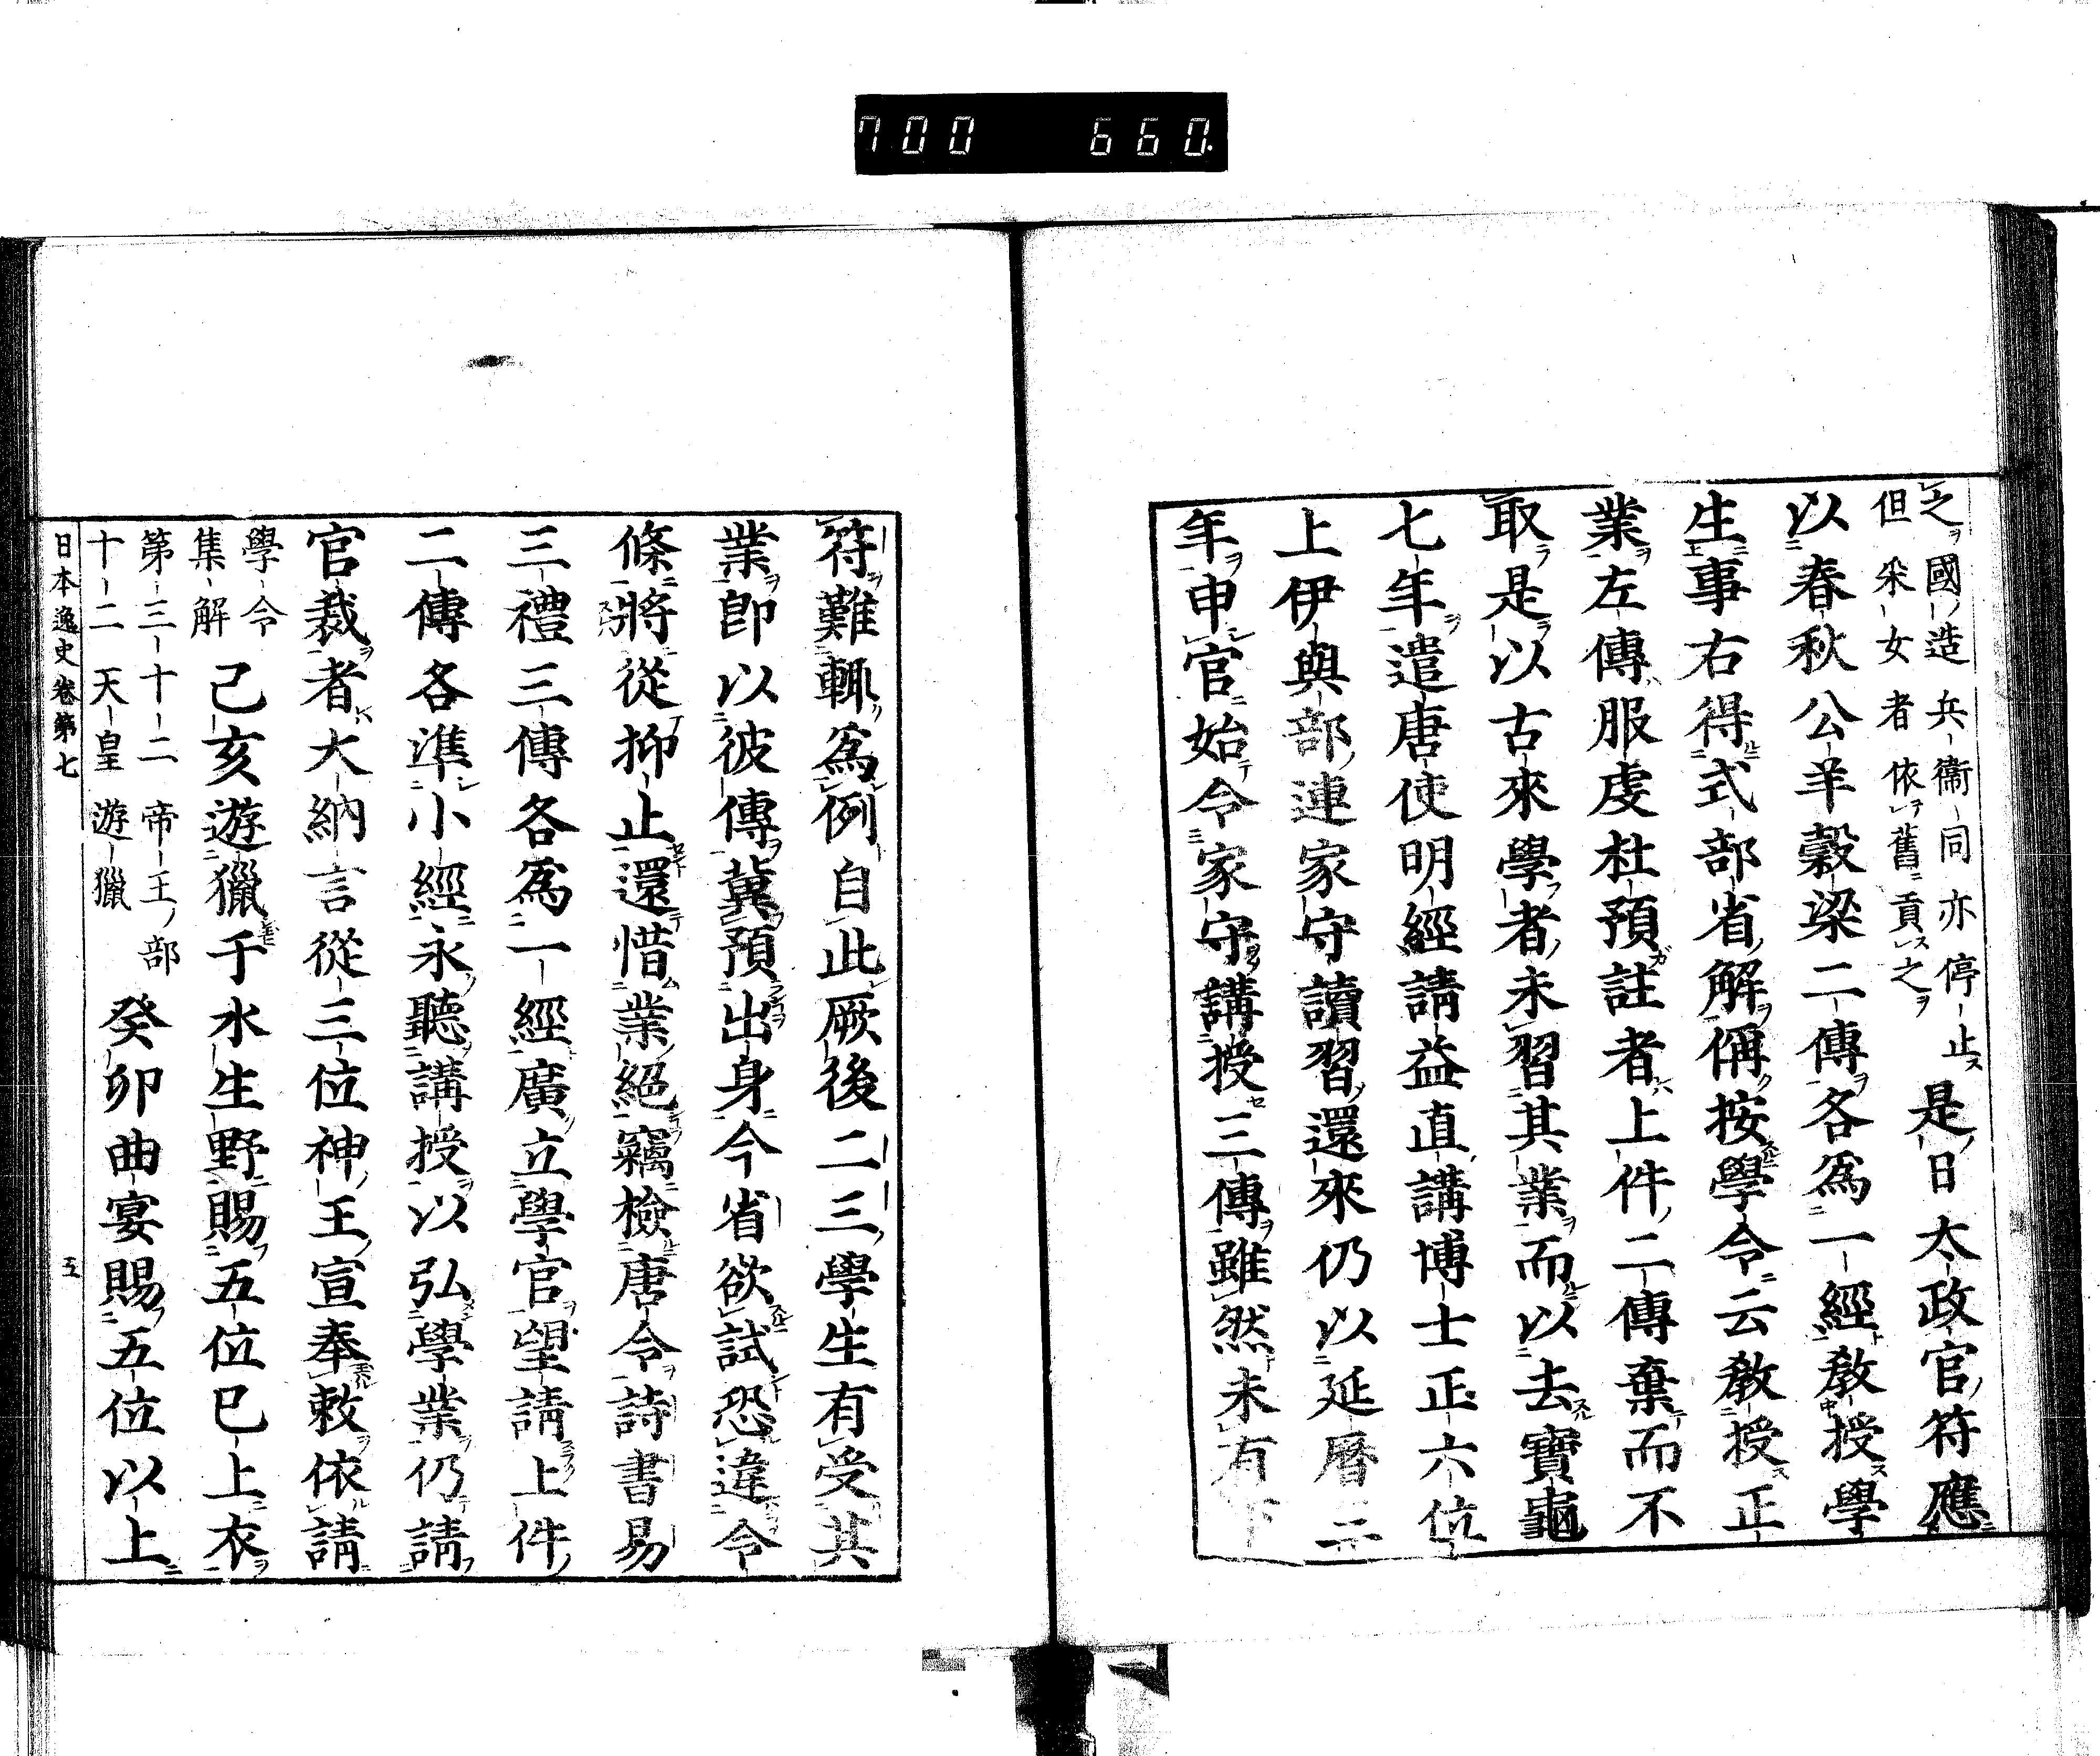 700 660
之國造兵衞同亦停止
但采女者依舊貢之
是日太政官符應
以春秋公羊穀梁二傳各爲一經教授學
生事右得式部省解偁按學令云教授正
業左傳服虔杜預註者上件二傳棄而不
取是以古來學者未習其業而以去寶龜
七年遣唐使明經請益直講博士正六位
上伊與部連家守讀習還來仍以延曆三
年申官始令家守講授三傳雖然未有下
符難輙爲例自此厥後二三學生有受其
業卽以彼傳冀預出身今省欲試恐違令
條將從抑止還惜業絕竊檢唐令詩書易
三禮三傳各爲一經廣立學官望請上件
二傳各準小經永聽講授以弘學業仍請
官裁者大納言從三位神王宣奉敕依請
學令
集解
己亥遊獵于水生野賜五位已上衣
第三十二帝王部
十二天皇遊獵
癸卯曲宴賜五位以上
日本逸史卷第七 五